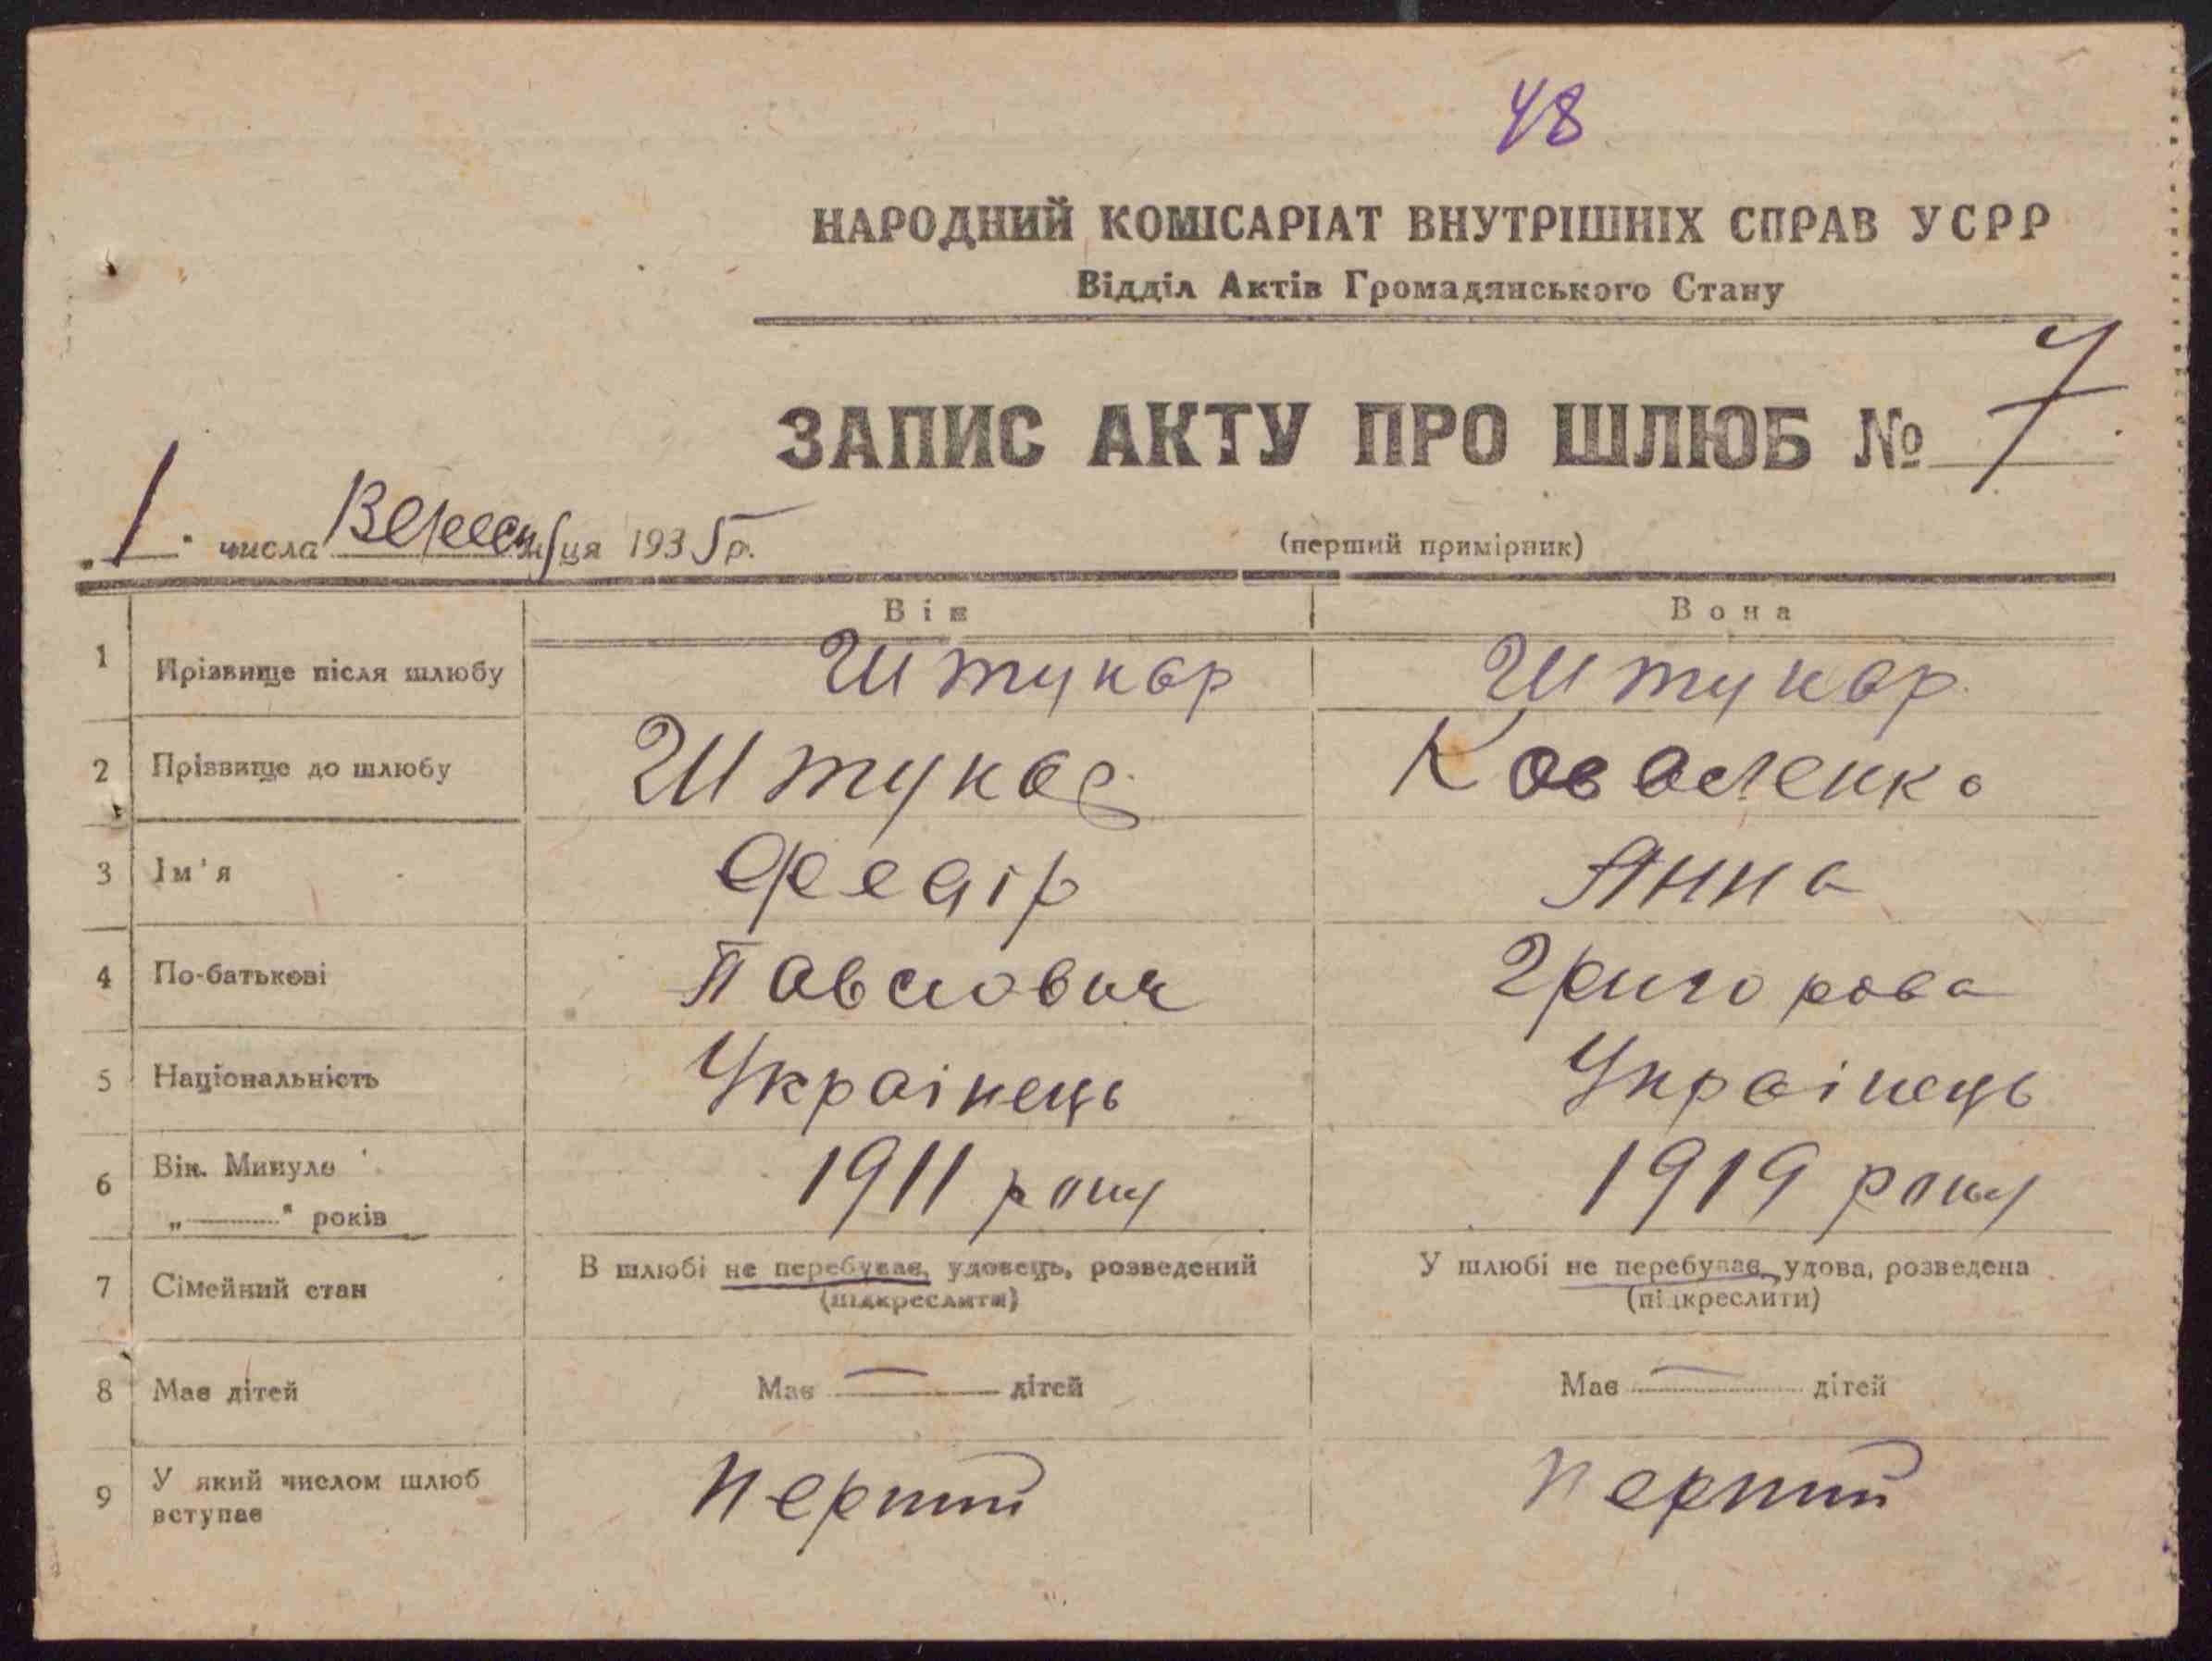 48
НАРОДНИЙ КОМІСАРІАТ ВНУТРІШНІХ СПРАВ УСРР
Відділ Актів Громадянського Стану
ЗАПИС АКТУ ПРО ШЛЮБ № 7
„1" числа Вересня м-ця 1935 р.
(перший примірник)
Він Вона
1 Прізвище після шлюбу Штукар Штукар
2 Прізвище до шлюбу Штукар Коваленко
3 Ім'я Федір Анна
4 По-батькові Павлович Григорова
5 Національність Українець Українець
6 Вік. Минуло 1911 року 1919 року
„———" років
7 Сімейний стан В шлюбі не перебуває, удовець, розведений У шлюбі не перебуває, удова, розведена
(підкреслити) (підкреслити)
8 Має дітей Має — дітей Має — дітей
9 У який числом шлюб вступає перший перший